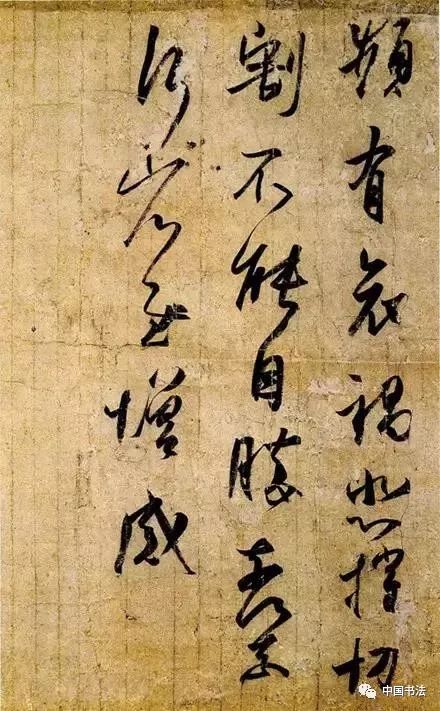 頻有哀禍悲摧切
割不能自勝奈何
奈何省慰增感
中国书法